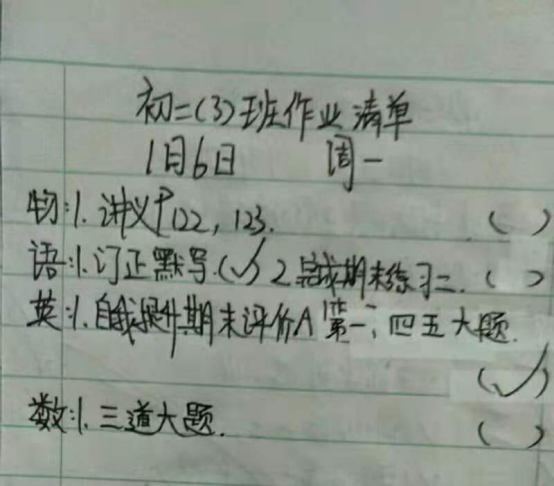 初二(3)班作业清单
1月6日 周一
物:1. 讲义P122, 123. ( )
语:1.订正默写.(✓) 2.完成期末练习二. ( )
英:1.自我提升期末评价A 第一、四五大题.
(✓)
数:1. 三道大题. ( )